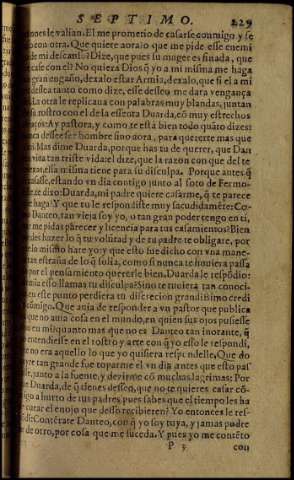 SEPTIMO. 229
iones le valian. El me prometio de casarse conmigo y se
con otra. Que quiere aora lo que me pide esse enemi
de mi descanso? Dize, que pues su muger es finada, que
case con el? No quiera Dios q̃ yo a mi misma me haga
gran engaño, dexalo estar Armia, dexalo, que si el a mi
dessea tanto como dize, esse desseo me dara vengança
La otra le replicaua con palabras muy blandas, juntan
su rostro con el de la essenta Duarda, cõ muy estrechos
Ay pastora, y como te està bien todo quãto dizes:
nca desseè ser hombre sino aora, para quererte mas que
Mas dime Duarda, porque has tu de querer, que Dan
viua tan triste vida? el dize, que la razon con que del te
essa misma tiene para su disculpa. Porque antes q̃
casasse, estando vn dia contigo junto al soto de Fermo
te dixo: Duarda, mi padre quiere casarme, q̃ te parece
haga? Y que tu le respondiste muy sacudidamẽte: Co
Danteo, tan vieja soy yo, o tan gran poder tengo en ti,
me pidas parecer y licencia para tus casamientos? Bien
des hazer lo q̃ tu voluntad y de tu padre te obligare, por
lo mismo hare yo: y que esto fue dicho con vna mane-
tan estraña de lo q̃ solia, como si nunca te huuiera passa
por el pensamiento quererle bien. Duarda le respõdio:
mia esso llamas tu disculpa? Sino te tuuiera tan conoci-
en este punto perdiera tu discrecion grandissimo credi
cõmigo. Que auia de responder a vn pastor que publica
que no auia cosa en el mundo, en quien sus ojos pusiesse
no en mi? quanto mas que no es Danteo tan inorante, q̃
entendiesse en el rostro y arte con q̃ yo esso le respondi,
no era aquello lo que yo quisiera respondelle. Que do
tan grande fue toparme el vn dia antes que esto pas
junto a la fuente, y dezirme cõ muchas lagrimas: Por
Duarda, de q̃ tienes desseo, que no te quieres casar cõ
a hurto de tus padres, pues sabes que el tiempo les ha
curar el enojo que desso recibieren? Yo entonces le res-
Contentate Danteo, con q̃ yo soy tuya, y jamas podre
de otro, por cosa que me suceda. Y pues yo me contẽto
P 3 con